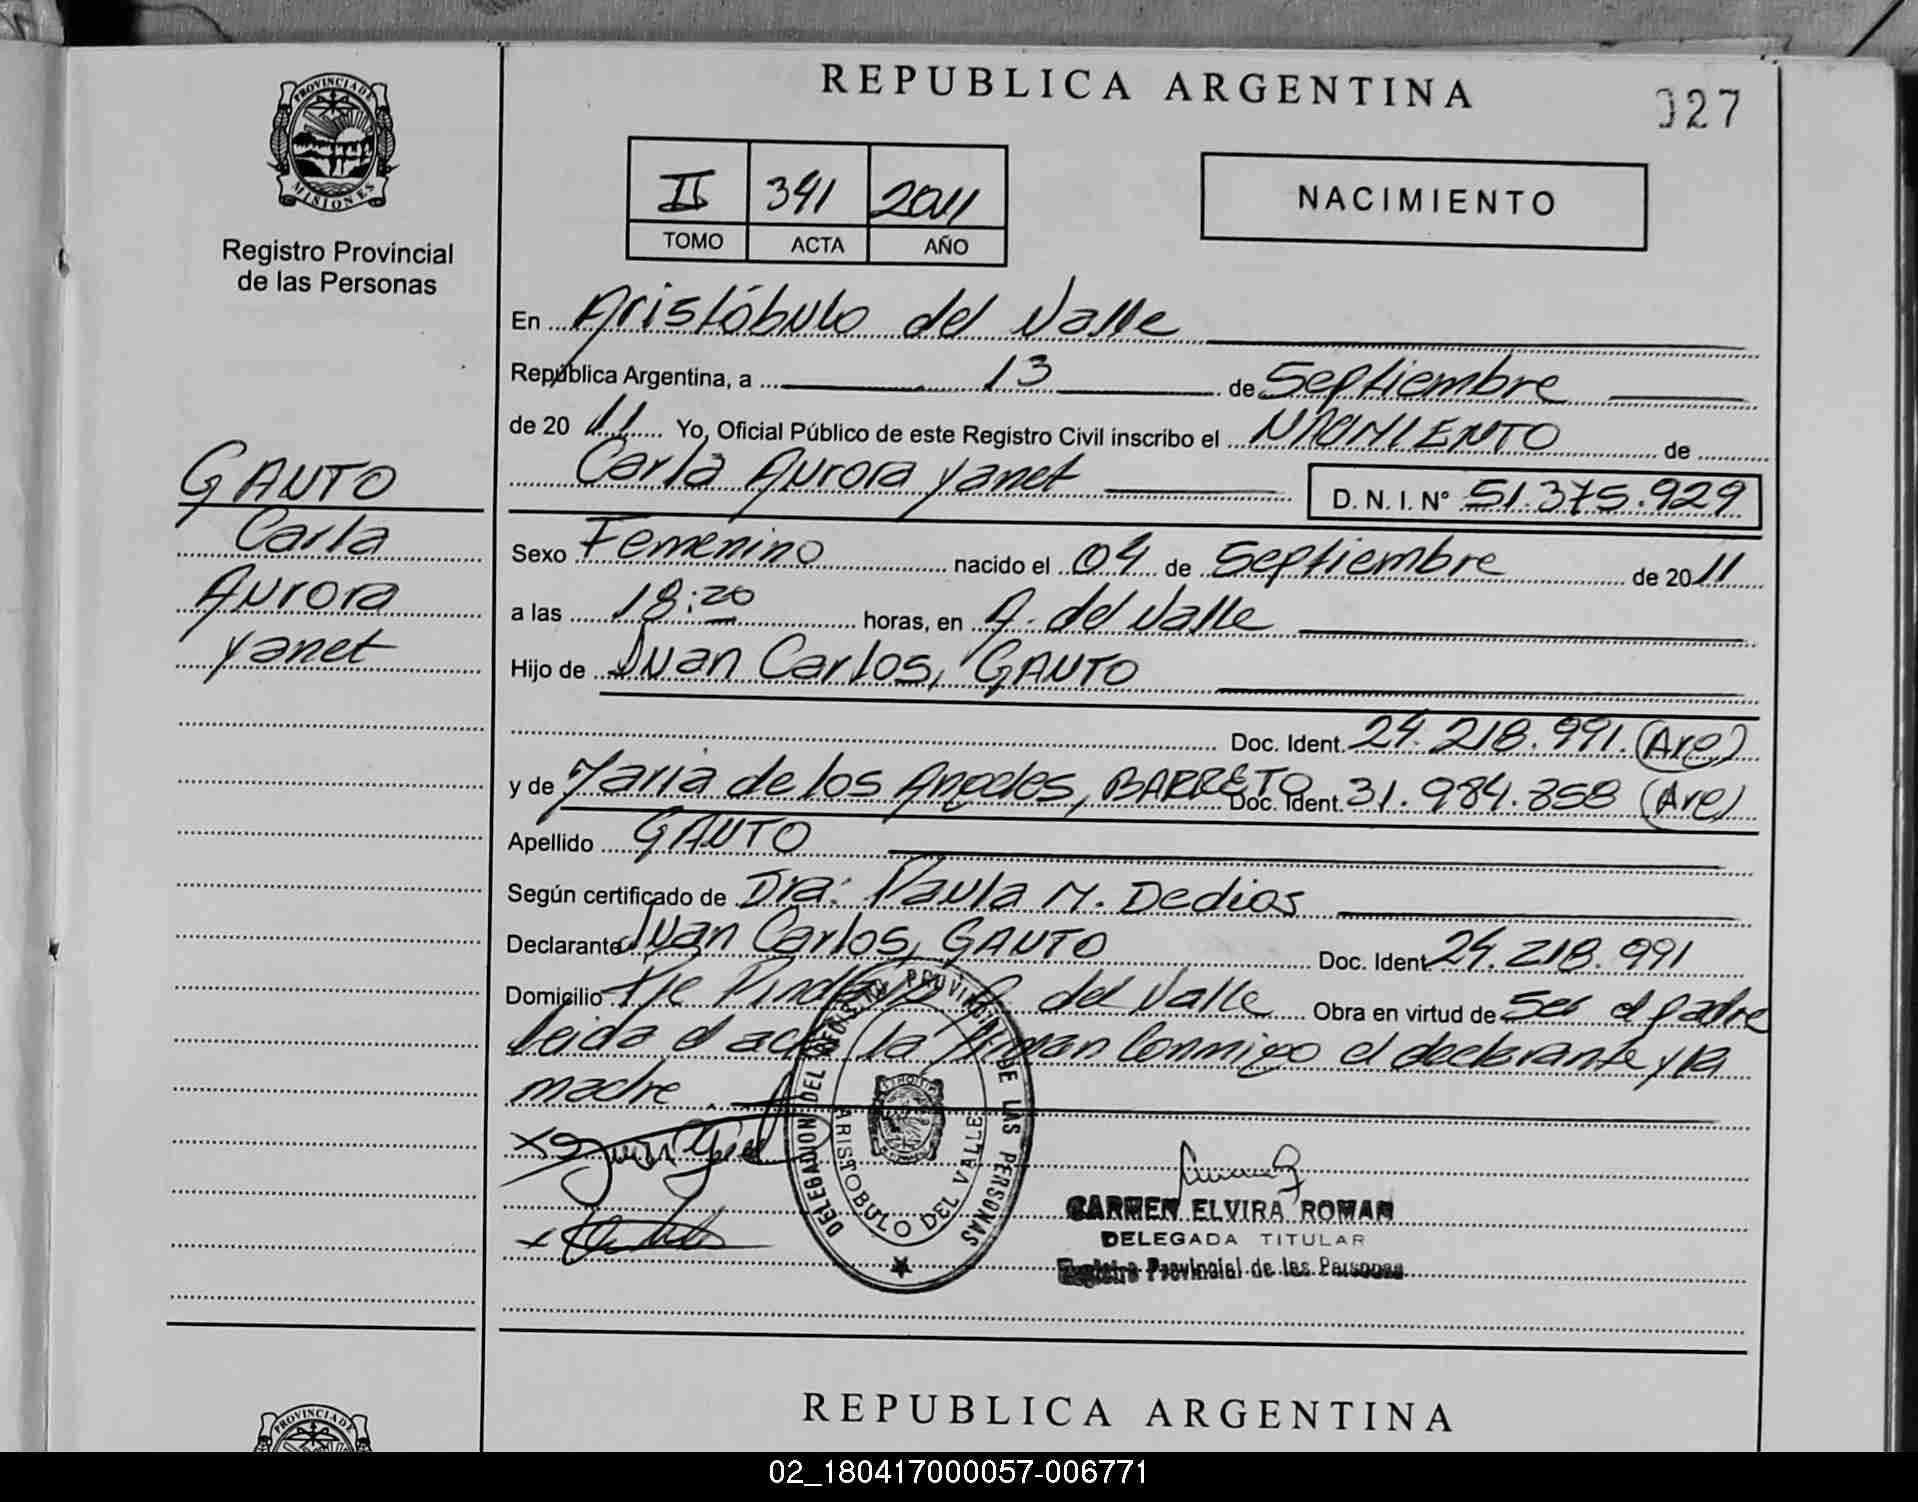 REPUBLICA ARGENTINA
027
PROVINCIA DE
MISIONES
Registro Provincial
de las Personas
II 341 2011
TOMO ACTA AÑO
NACIMIENTO
En Aristóbulo del Valle
República Argentina, a 13 de Septiembre
de 20 11 Yo, Oficial Público de este Registro Civil inscribo el NACIMIENTO de
Carla Aurora Yanet D. N. I. N° 51.375.929
GAUTO
Carla
Aurora
Yanet
Sexo Femenino nacido el 04 de Septiembre de 2011
a las 18:20 horas, en A. del Valle
Hijo de Juan Carlos, GAUTO
Doc. Ident. 24.218.991. (Arg)
y de Maria de los Angeles, BARRETO Doc. Ident. 31.984.858 (Arg)
Apellido GAUTO
Según certificado de Dra: Paula M. Dedios
Declarante Juan Carlos, GAUTO Doc. Ident. 24.218.991
Domicilio Pje A. del Valle Obra en virtud de Ser el padre
Leida el acta la firman conmigo el declarante y la
madre.
DELEGACION DEL REGISTRO PROVINCIAL DE LAS PERSONAS
ARISTOBULO DEL VALLE
CARMEN ELVIRA ROMAN
DELEGADA TITULAR
Registro Provincial de las Personas
REPUBLICA ARGENTINA
PROVINCIA DE
02_180417000057-006771